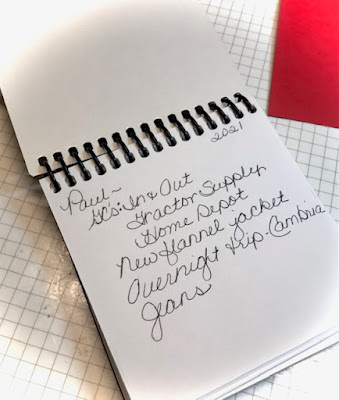 2021
Paul~
GC's: In & Out
Tractor Supply
Home Depot
New flannel jacket
Overnight trip-Cambria
Jeans